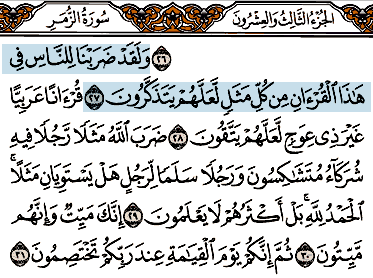 الجزء الثالث والعشرون سورة الزمر
٢٦ ولقد ضربنا للناس في
هذا القرءان من كل مثل لعلهم يتذكرون ٢٧ قرءانا عربيا
غير ذي عوج لعلهم يتقون ٢٨ ضرب الله مثلا رجلا فيه
شركاء متشاكسون ورجلا سلما لرجل هل يستويان مثلا
الحمد لله بل أكثرهم لا يعلمون ٢٩ إنك ميت وإنهم
ميتون ٣٠ ثم إنكم يوم القيامة عند ربكم تختصمون ٣١